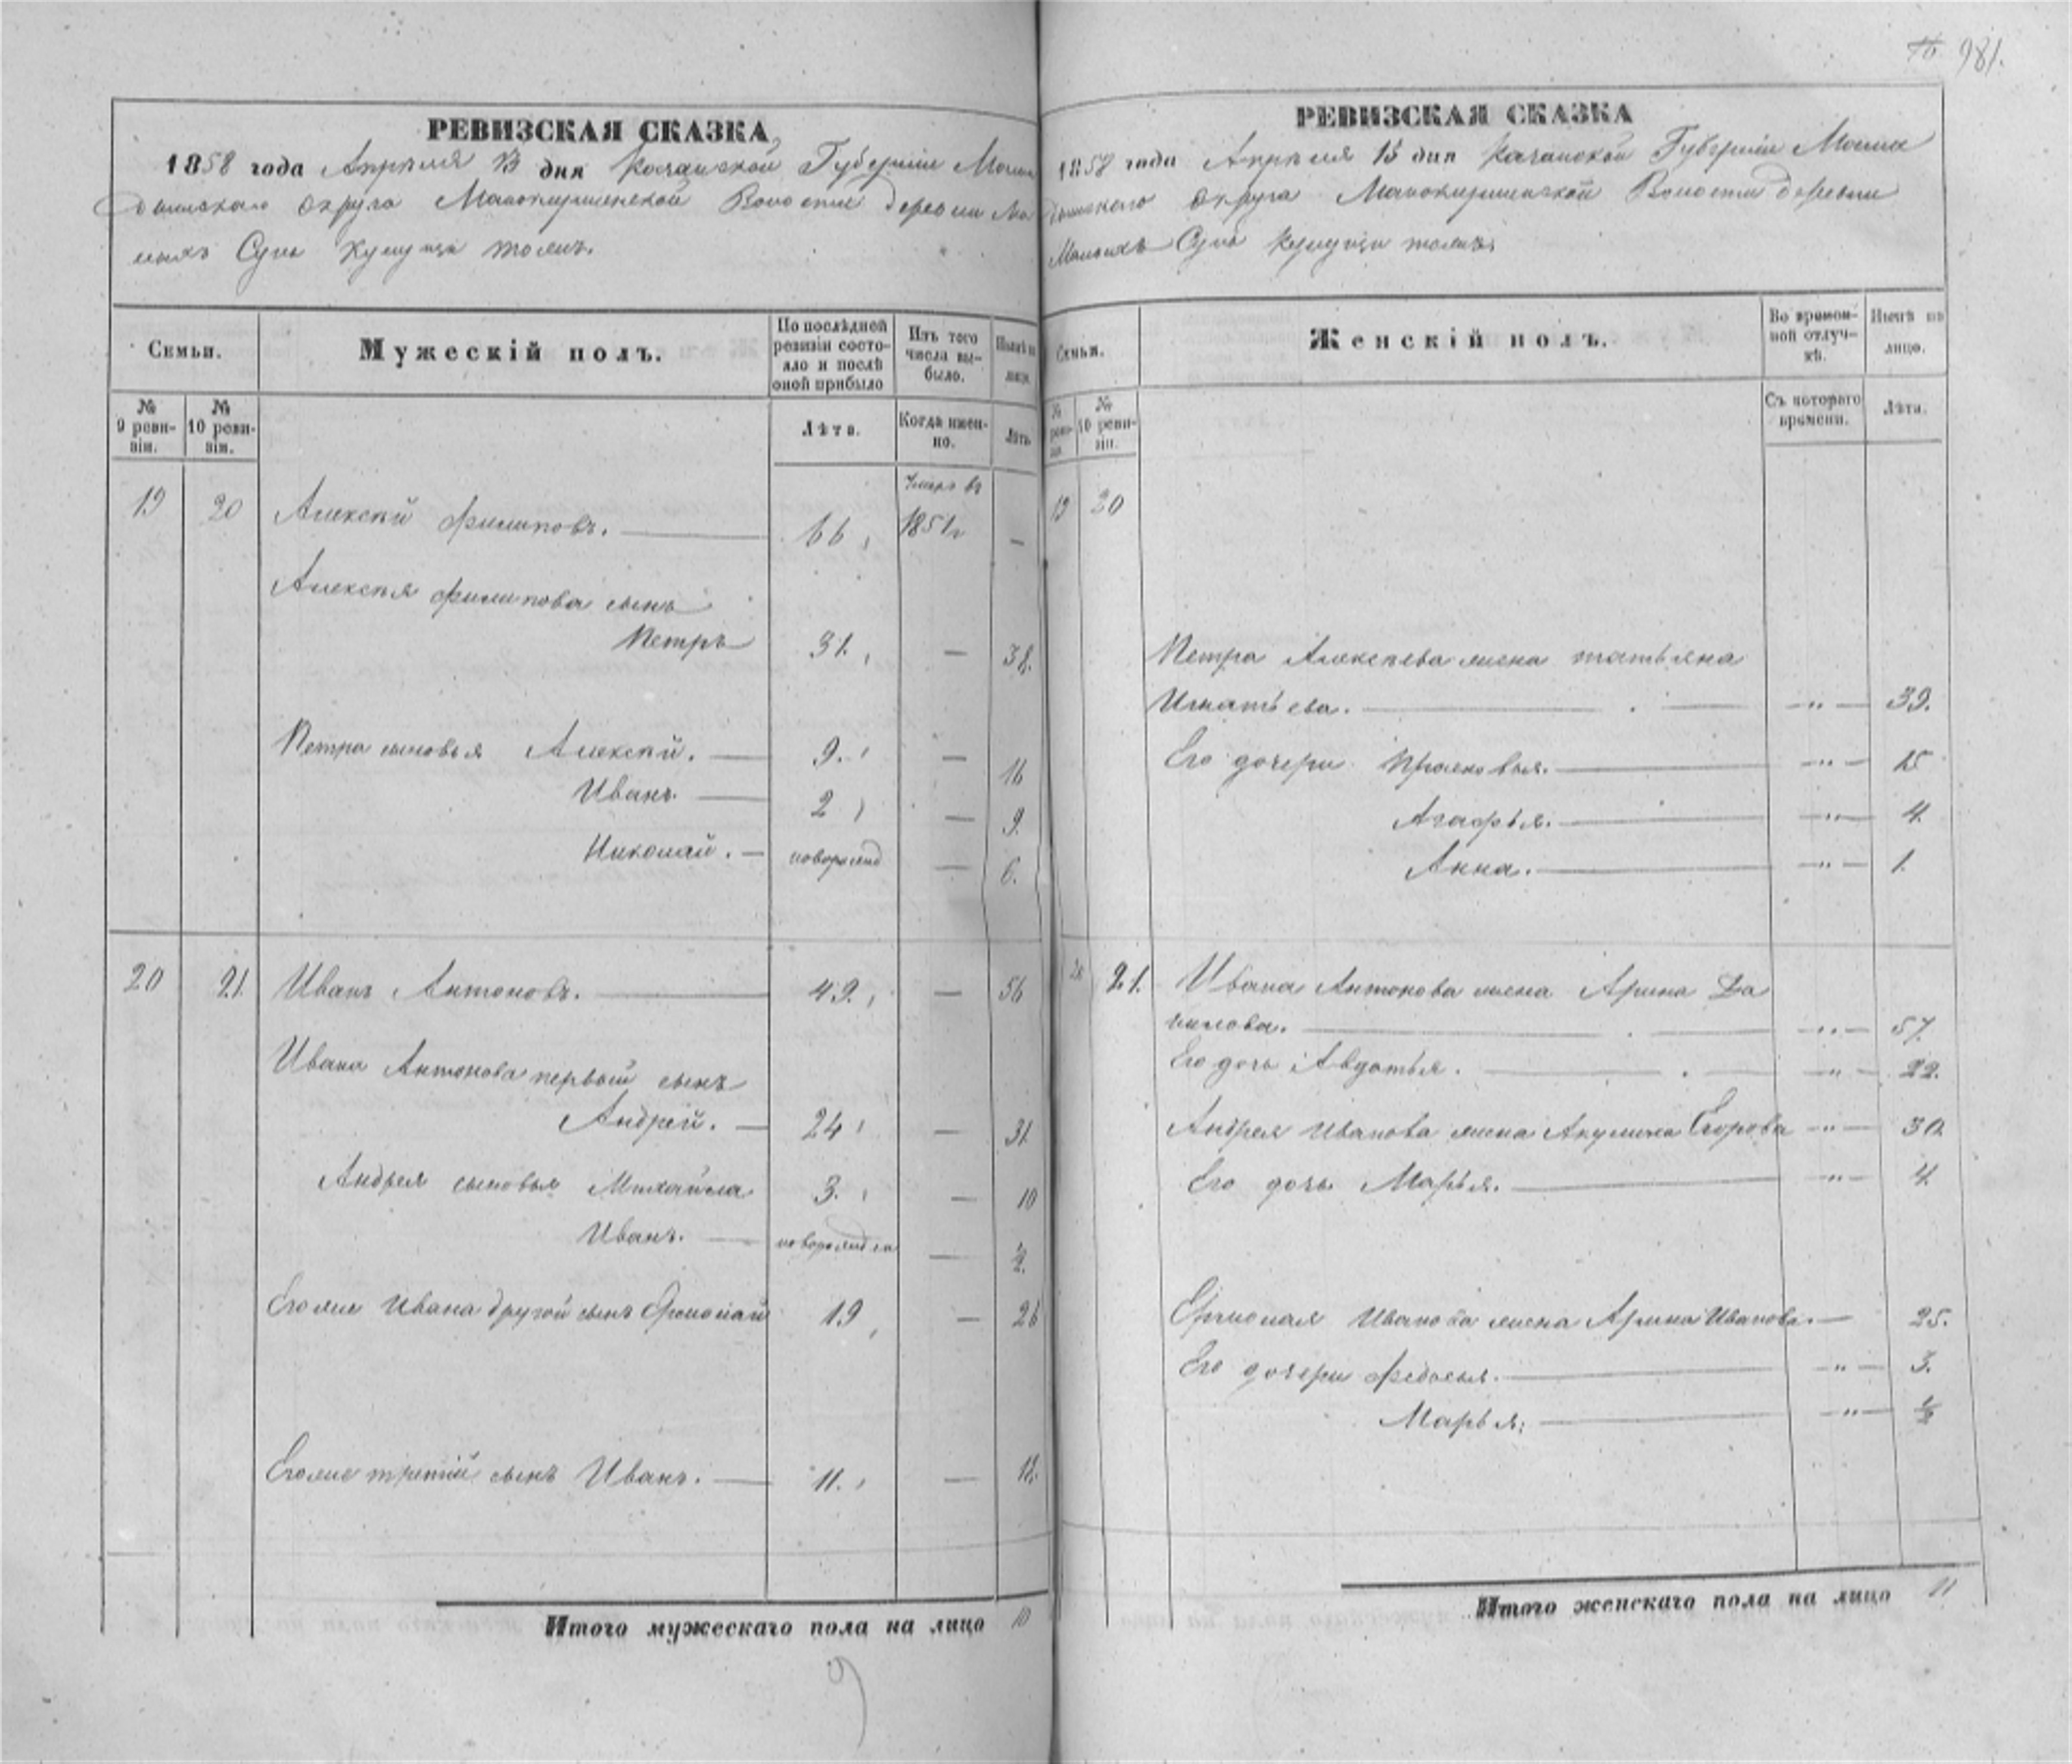 981.
РЕВИЗСКАЯ СКАЗКА
1858 года Апрѣля 15 дня Казанской Губернiи Мама
дышскаго округа Малокирменской Волости деревни Ма
лыхъ Сунь
РЕВИЗСКАЯ СКАЗКА
1858 года Апрѣля 15 дня Казанской Губернiи Мама
дышскаго округа Малокирменской Волости деревни
Малыхъ Сунь
Семьи.
Мужескiй полъ.
По послѣдней ревизiи состояло и послѣ оной прибыло
Изъ того числа выбыло.
Нынѣ на лицо.
№ 9 ревизiи.
№ 10 ревизiи.
Лѣта.
Когда именно.
Лѣта.
19 20 Алексѣй Филиповъ. 66 Умеръ въ 1851г —
Алексѣя Филипова сынъ
Петръ 31. — 38.
Петра сыновья Алексѣй. 9. — 16
Иванъ 2 — 9.
Николай. новорожд — 6.
20 21. Иванъ Антоновъ. 49. — 56
Ивана Антонова первый сынъ
Андрей. 24 — 31.
Андрея сыновья Михайла 3. — 10
Иванъ. новорожден — ½.
Его же Ивана другой сынъ Ермолай 19 — 26
Его же третiй сынъ Иванъ. 11. — 18.
Итого мужескаго пола на лицо 10
9
Семьи.
Женскiй полъ.
Во временной отлучкѣ.
Нынѣ на лицо.
№ ревизiи.
№ 10 ревизiи.
Съ котораго времени.
Лѣта.
19 20
Петра Алексѣева жена татьяна
Игнатьева. — „ — 39.
Его дочери Прасковья. — „ — 15
Агафья. — „ — 4.
Анна. — „ — 1.
20 21. Ивана Антонова жена Арина Да
нилова. — „ — 57.
Его дочь Авдотья. — „ — 22.
Андрея Иванова жена Акулина Егорова — „ — 30.
Его дочь Марья. — „ — 4.
Ермолая Иванова жена Арина Иванова. — 25.
Его дочери Федосья. — „ — 3.
Марья. — „ — ½
Итого женскаго пола на лицо 11